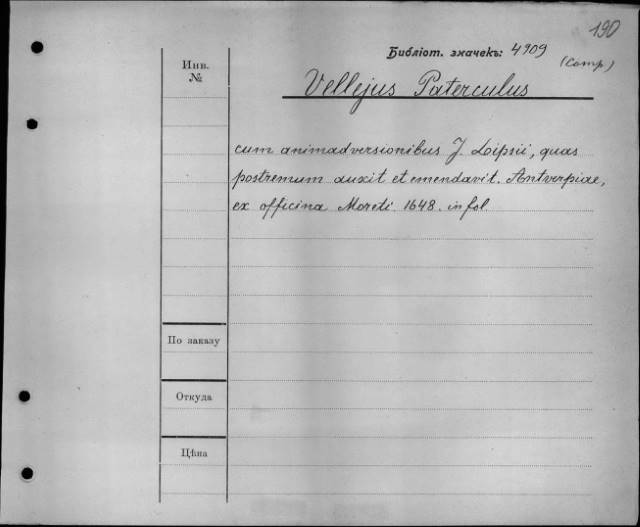 190
Библіот. значекъ: 4909
(Comp)
Инв.
№
Vellejus Paterculus
cum animadversionibus J. Lipsii, quas
postremum auxit et emendavit. Antverpiae,
ex officina Moreti. 1648. in fol.
По заказу
Откуда
Цѣна